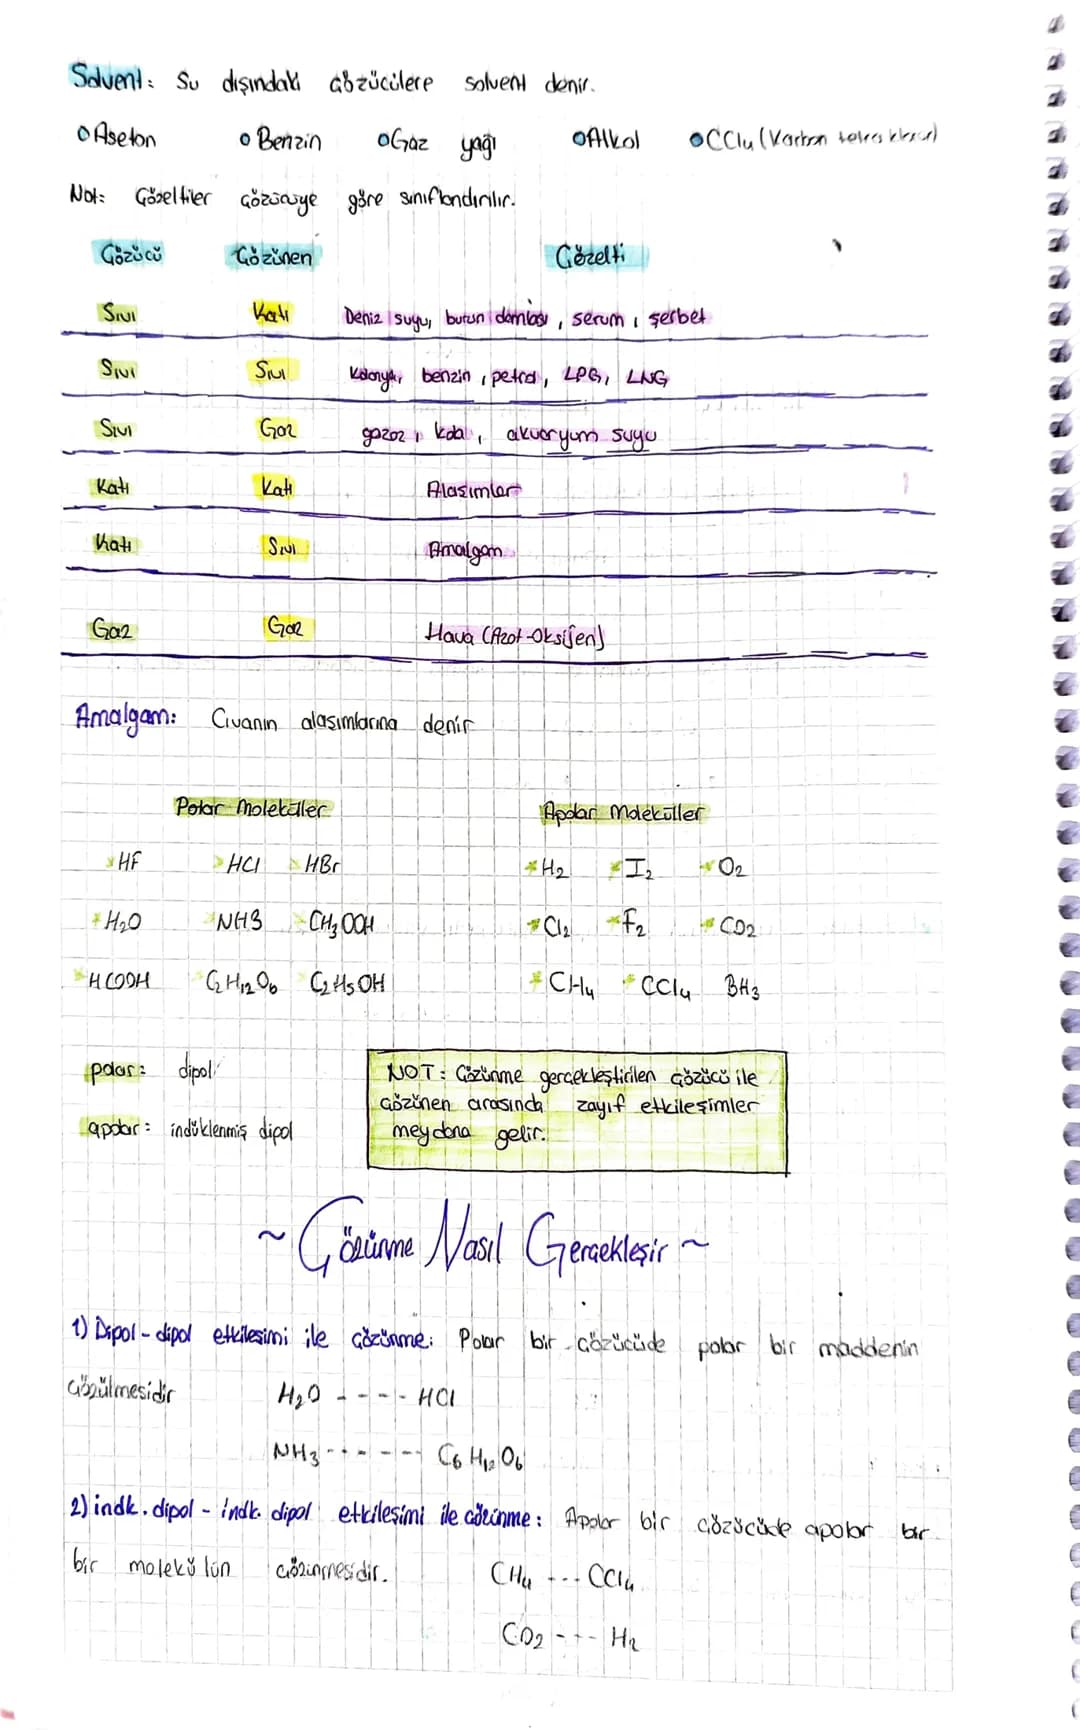 Solvent: Su dışındaki çözücülere solvent denir.
Aseton Benzin Gaz yağı Alkol CCl4 (Karbon tetra klorür)
Not: Çözeltiler çözücüye göre sınıflandırılır.
Çözücü Çözünen Çözelti
Sıvı Katı Deniz suyu, burun damlası, serum, şerbet
Sıvı Sıvı Kolonya, benzin, petrol, LPG, LNG
Sıvı Gaz gazoz, kola, akvaryum suyu
Katı Katı Alaşımlar
Katı Sıvı Amalgam
Gaz Gaz Hava (Azot-Oksijen)
Amalgam: Civanın alaşımlarına denir
Polar Moleküller Apolar Moleküller
*HF *HCl *HBr *H2 *I2 *O2
*H2O *NH3 *CH3OOH *Cl2 *F2 *CO2
*HCOOH *C6H12O6 *C2H5OH *CH4 *CCl4 BH3
polar: dipol
apolar: indüklenmiş dipol
NOT: Çözünme gerçekleştirilen çözücü ile
çözünen arasında zayıf etkileşimler
meydana gelir.
~Çözünme Nasıl Gerçekleşir~
1) Dipol - dipol etkileşimi ile çözünme: Polar bir çözücüde polar bir maddenin
çözülmesidir H2O ---- HCl
NH3 ------ C6H12O6
2) indk. dipol - indk. dipol etkileşimi ile çözünme: Apolar bir çözücüde apolar bir
bir molekülün çözünmesidir. CH4 --- CCl4
CO2 --- H2